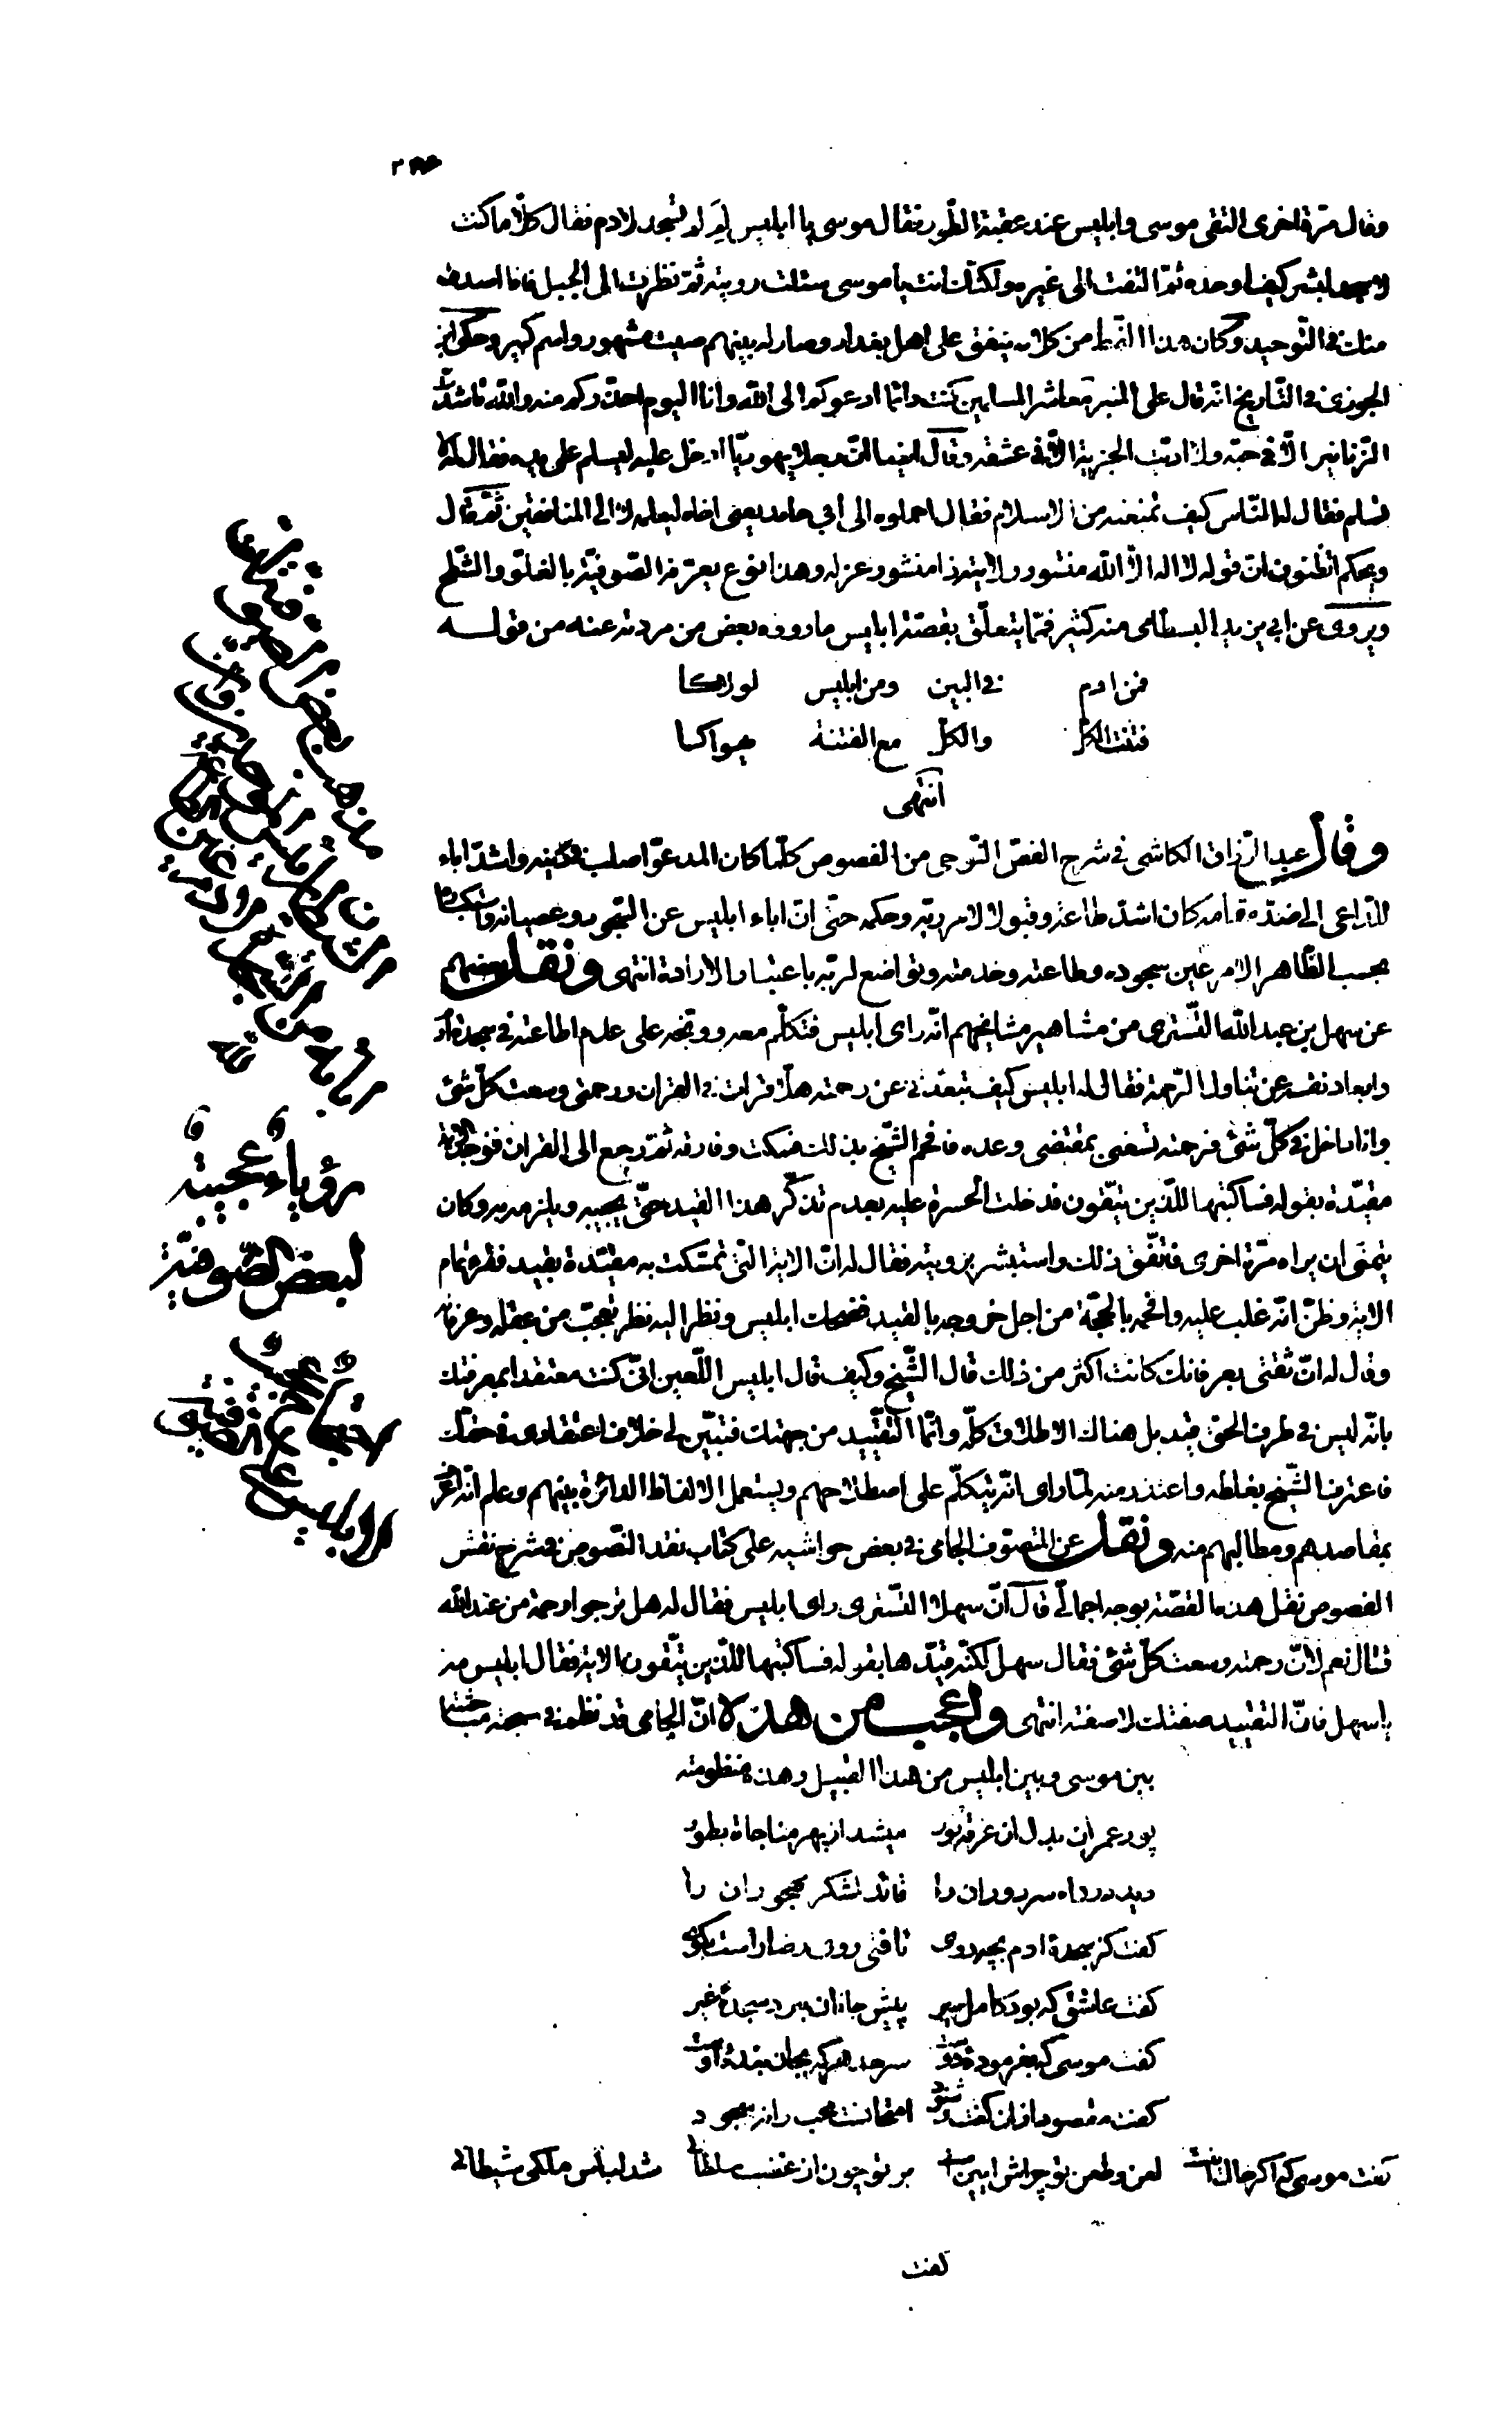 وقال مرة اخرى التقى موسى وابليس عند عقبة الطور فقال موسى يا ابليس لِمَ لم تسجد لادم فقال كلّا ما كنت
لاسجد لبشر كيف اوحده ثمّ التفت الى غيره ولكنّك انت يا موسى سئلت رويته ثمّ نظرت الى الجبل فانا اصدق
منك في التّوحيد وكان هذا النّمط من كلامه ينفق على اهل بغداد وصار له بينهم صيت مشهور واسم كبير وحكى ابن
الجوزى في التّاريخ انّه قال على المنبر معاشر المسلمين كنت دائما ادعوكم الى الله وانا اليوم احذّركم منه والله ما شدّت
الزّنانير الّا في حبّه ولا ادّيت الجزية الّا في عشقه وقال ايضا انّ رجلا يهوديّا ادخل عليه ليسلم على يده فقال له لا
تسلم فقال له النّاس كيف تمنعه من الاسلام فقال احملوه الى ابي حامد يعنى اخاه ليعلمه لا لا المنافقين ثمّ قال
ويحكم اتظنّون انّ قوله لا اله الّا الله منشور ولايته ذا منشور عزله وهذا نوع يعرّفه الصّوفيّة بالغلوّ والشّطح
ويروى عن ابي يزيد البسطامى منه كثير فممّا يتعلّق بقصّة ابليس ما رووه بعض من مردته عنه من قوله
فمن ادم في البين ومن ابليس لولاكا
فتنت الكلّ والكلّ مع الفتنة يهواكا
انتهى
وقال عبد الرّزاق الكاشى في شرح الفصّ النّوحى من الفصوص كلّما كان المدعوّ اصلب في دينه واشدّ اباء
للدّاعى الى ضدّه كان اشدّ طاعة وقبولا لامر ربّه وحكمه حتّى انّ اباء ابليس عن السّجود وعصيانه واستكباره
بحسب الظّاهر الامر عين سجوده وطاعته وخدمته وتواضع لربّه باعتبار الارادة انتهى ونقل بعضهم
عن سهل بن عبد الله التّسترى من مشاهير مشايخهم انّه راى ابليس فتكلّم معه ووبّخه على عدم اطاعته في سجدة ادم
وابعاد نفسه عن تناول الرّحمة فقال له ابليس كيف تبعّدنى عن رحمته هلّا قرات في القران ورحمتى وسعت كلّ شئ
وانا داخل في كلّ شئ فرحمته تسعنى بمقتضى وعده فافحم الشّيخ بذلك فسكت وفارقه ثمّ رجع الى القران فوجد الاية
مقيّدة بقوله فساكتبها للّذين يتّقون فدخلت الحسرة عليه بعدم تذكّر هذا القيد حتّى يجيبه ويلزمه به وكان
يتمنّى ان يراه مرّة اخرى فاتّفق ذلك واستبشر برويته فقال له انّ الاية الّتى تمسّكت به مقيّدة بقيد فقره تمام
الاية وظنّ انّه غلب عليه وافحمه بالحجّة من اجل خروجه بالقيد فضحك ابليس ونظر اليه نظر تعجّب من عقله وعرفانه
وقال له انّ ثقتى بعرفانك كانت اكثر من ذلك قال الشّيخ وكيف قال ابليس اللّعين انّى كنت معتقدا بمعرفتك
بانّه ليس في طرف الحقّ قيد بل هناك الاطلاق كلّه وانّما التّقييد من جهتك فتبيّن لى خلاف اعتقادى في حقّك
فاعترف الشّيخ بغلطه واعتذر منه لمّا راى انّه يتكلّم على اصطلاحهم ويستعمل الالفاظ الدائرة بينهم وعلم انّه اعرف
بمقاصدهم ومطالبهم منه ونقل عن المتصوّف الجامى في بعض حواشيه على كتاب نقد النّصوص في شرح نقش
الفصوص نقل هذه القصّة بوجه اجمالّى قال انّ سهلا التّسترى راى ابليس فقال له هل ترجوا رحمة من عند الله
فقال نعم لانّ رحمته وسعت كلّ شئ فقال سهل لكنّه قيّدها بقوله فساكتبها للّذين يتّقون الاية فقال ابليس مه
يا سهل فانّ التقييد صفتك لا صفته انتهى واعجب من هذا انّ الجامى قد نظم في سبحته مباحثة
بين موسى وبين ابليس من هذا القبيل وهذه منظومته
پور عمران بدل ان غرقه نور ميشد از بهر مناجاة بطور
ديد در راه سر دوران را قائد لشكر مهجوران را
كفت كز سجدهٔ ادم بچه روى تافتى روى رضا راست بكوى
كفت عاشق كه بود كامل سير پيش جانان نبرد سجدهٔ غير
كفت موسى كه بفرمودهٔ دوست سر نهد هر كه بجان بندهٔ اوست
كفت مقصود ازان كفت وشنود امتحانست محب را نه سجود
كفت موسى كه اكر حال اينست لعن وطعن تو چراش ايين است بر تو چون از غضب سلطانى شد لباس ملكى شيطانى
كفت
رؤياء عجيبة
لبعض الصّوفيّة